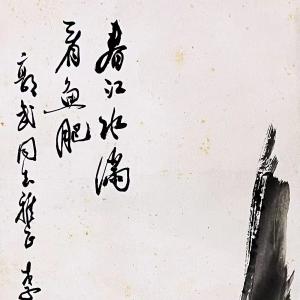 春江水满
看鱼肥
郭武同志雅正 李